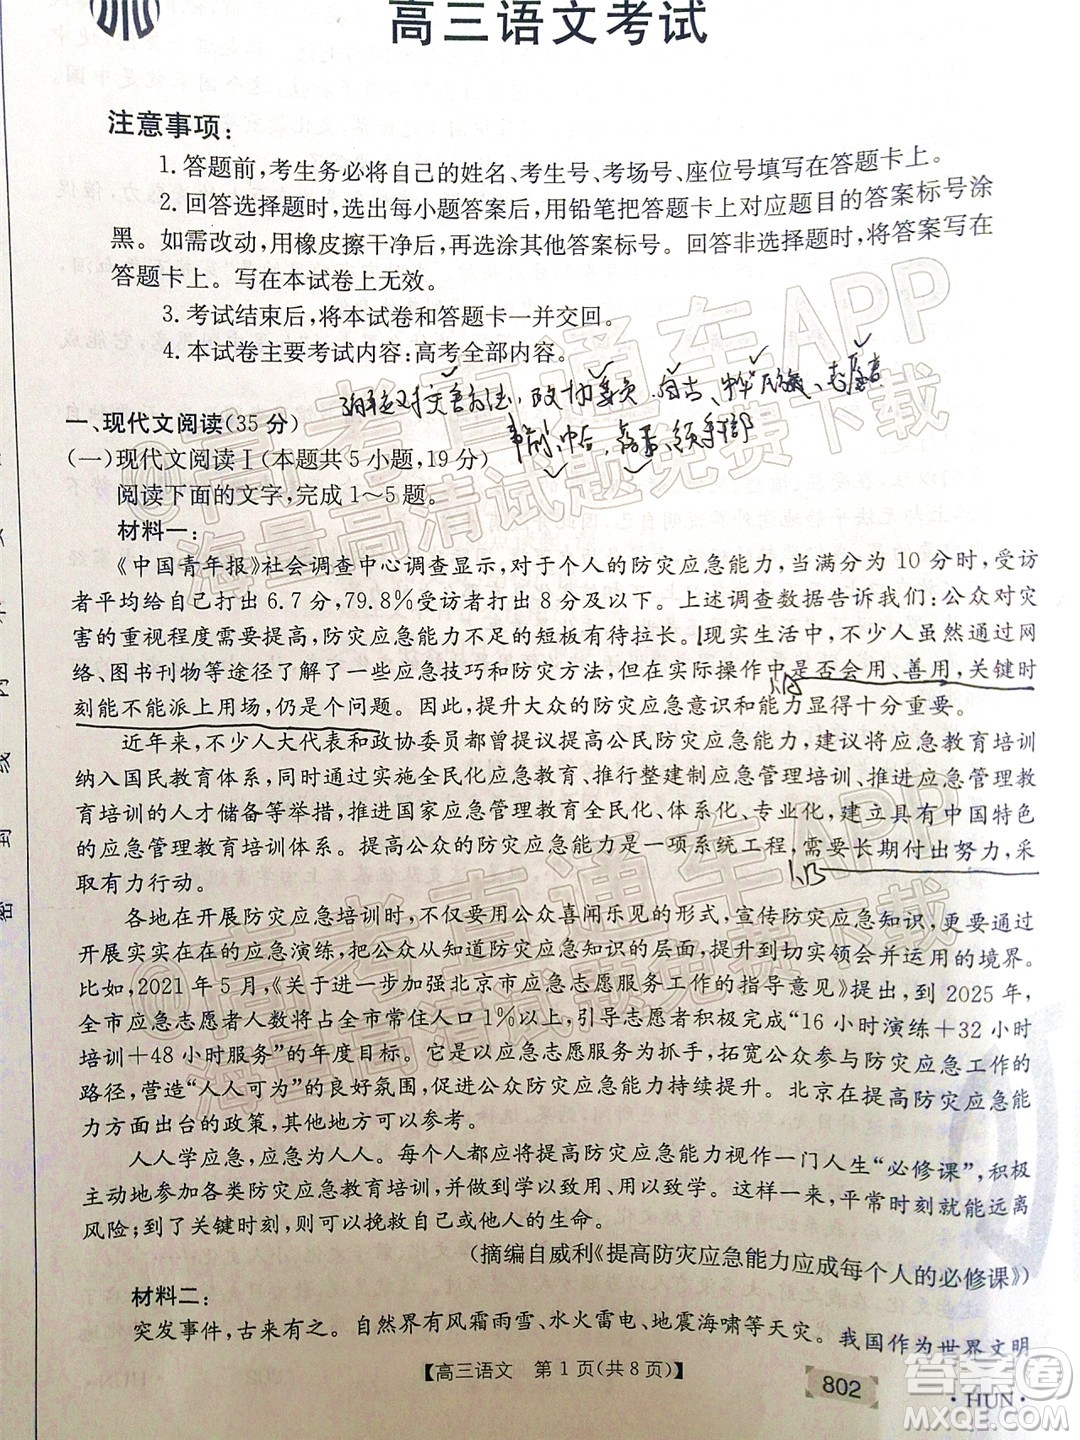 高三语文考试
注意事项：
1.答题前,考生务必将自己的姓名、考生号、考场号、座位号填写在答题卡上。
2.回答选择题时,选出每小题答案后,用铅笔把答题卡上对应题目的答案标号涂
黑。如需改动,用橡皮擦干净后,再选涂其他答案标号。回答非选择题时,将答案写在
答题卡上。写在本试卷上无效。
3.考试结束后,将本试卷和答题卡一并交回。
4.本试卷主要考试内容:高考全部内容。
一、现代文阅读(35分)
(一)现代文阅读Ⅰ(本题共5小题,19分)
阅读下面的文字,完成1~5题。
材料一：
《中国青年报》社会调查中心调查显示,对于个人的防灾应急能力,当满分为10分时,受访
者平均给自己打出6.7分,79.8%受访者打出8分及以下。上述调查数据告诉我们:公众对灾
害的重视程度需要提高,防灾应急能力不足的短板有待拉长。现实生活中,不少人虽然通过网
络、图书刊物等途径了解了一些应急技巧和防灾方法,但在实际操作中是否会用、善用,关键时
刻能不能派上用场,仍是个问题。因此,提升大众的防灾应急意识和能力显得十分重要。
近年来,不少人大代表和政协委员都曾提议提高公民防灾应急能力,建议将应急教育培训
纳入国民教育体系,同时通过实施全民化应急教育、推行整建制应急管理培训、推进应急管理教
育培训的人才储备等举措,推进国家应急管理教育全民化、体系化、专业化,建立具有中国特色
的应急管理教育培训体系。提高公众的防灾应急能力是一项系统工程,需要长期付出努力,采
取有力行动。
各地在开展防灾应急培训时,不仅要用公众喜闻乐见的形式,宣传防灾应急知识,更要通过
开展实实在在的应急演练,把公众从知道防灾应急知识的层面,提升到切实领会并运用的境界。
比如,2021年5月,《关于进一步加强北京市应急志愿服务工作的指导意见》提出,到2025年,
全市应急志愿者人数将占全市常住人口1%以上,引导志愿者积极完成“16小时演练+32小时
培训+48小时服务”的年度目标。它是以应急志愿服务为抓手,拓宽公众参与防灾应急工作的
路径,营造“人人可为”的良好氛围,促进公众防灾应急能力持续提升。北京在提高防灾应急能
力方面出台的政策,其他地方可以参考。
人人学应急,应急为人人。每个人都应将提高防灾应急能力视作一门人生“必修课”,积极
主动地参加各类防灾应急教育培训,并做到学以致用、用以致学。这样一来,平常时刻就能远离
风险;到了关键时刻,则可以挽救自己或他人的生命。
(摘编自威利《提高防灾应急能力应成每个人的必修课》)
材料二：
突发事件,古来有之。自然界有风霜雨雪、水火雷电、地震海啸等天灾。我国作为世界文明
【高三语文 第1页(共8页)】
802
·HUN·
@高考直通车APP
海量高清试题免费下载
@高考直通车APP
海量高清试题免费下载
答案圈
MXQE.COM